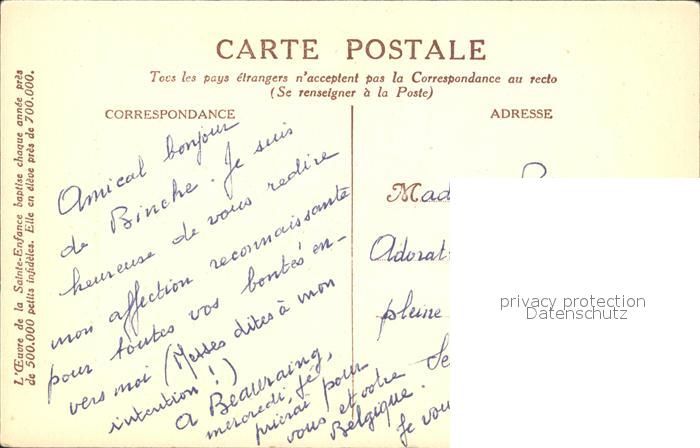 CARTE POSTALE
Tous les pays étrangers n'acceptent pas la Correspondance au recto
(Se renseigner à la Poste)
CORRESPONDANCE
Amical bonjour
de Binche. Je suis
heureuse de vous redire
mon affection reconnaissante
pour toutes vos bontés en-
vers moi (Messes dites à mon
intention!)
A Beauraing,
mercredi,
prierai pour
vous et votre
Belgique.
Je vou
ADRESSE
Mad
Adorat
pleine
Se
privacy protection
Datenschutz
L'Œuvre de la Sainte-Enfance baptise chaque année près
de 500.000 petits infidèles. Elle en élève près de 700.000.